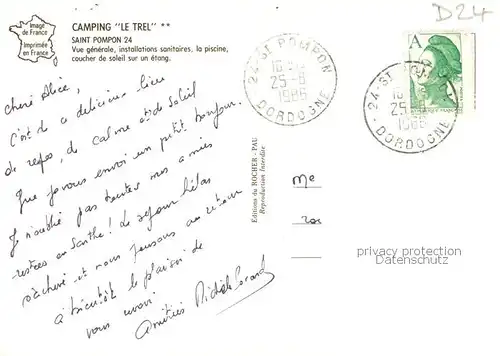 Image
de France
Imprimée
en France
CAMPING "LE TREL" **
SAINT POMPON 24
Vue générale, installations sanitaires, la piscine,
coucher de soleil sur un étang.
Chère Alice,
C'est de ce délicieux lieu
de repos, de calme et de soleil
que je vous envoi un petit bonjour.
Je n'oublie pas toutes mes amies
restées en Sarthe! Le séjour hélas
s'achève et nous pensons au retour
à bientôt le plaisir de
vous revoir
Amitiés Michèle
Editions du ROCHER - PAU
Reproduction Interdite
24-ST POMPON
25-8
1986
DORDOGNE
D24
A
24-ST
1986
DORDOGNE
Me
privacy protection
Datenschutz